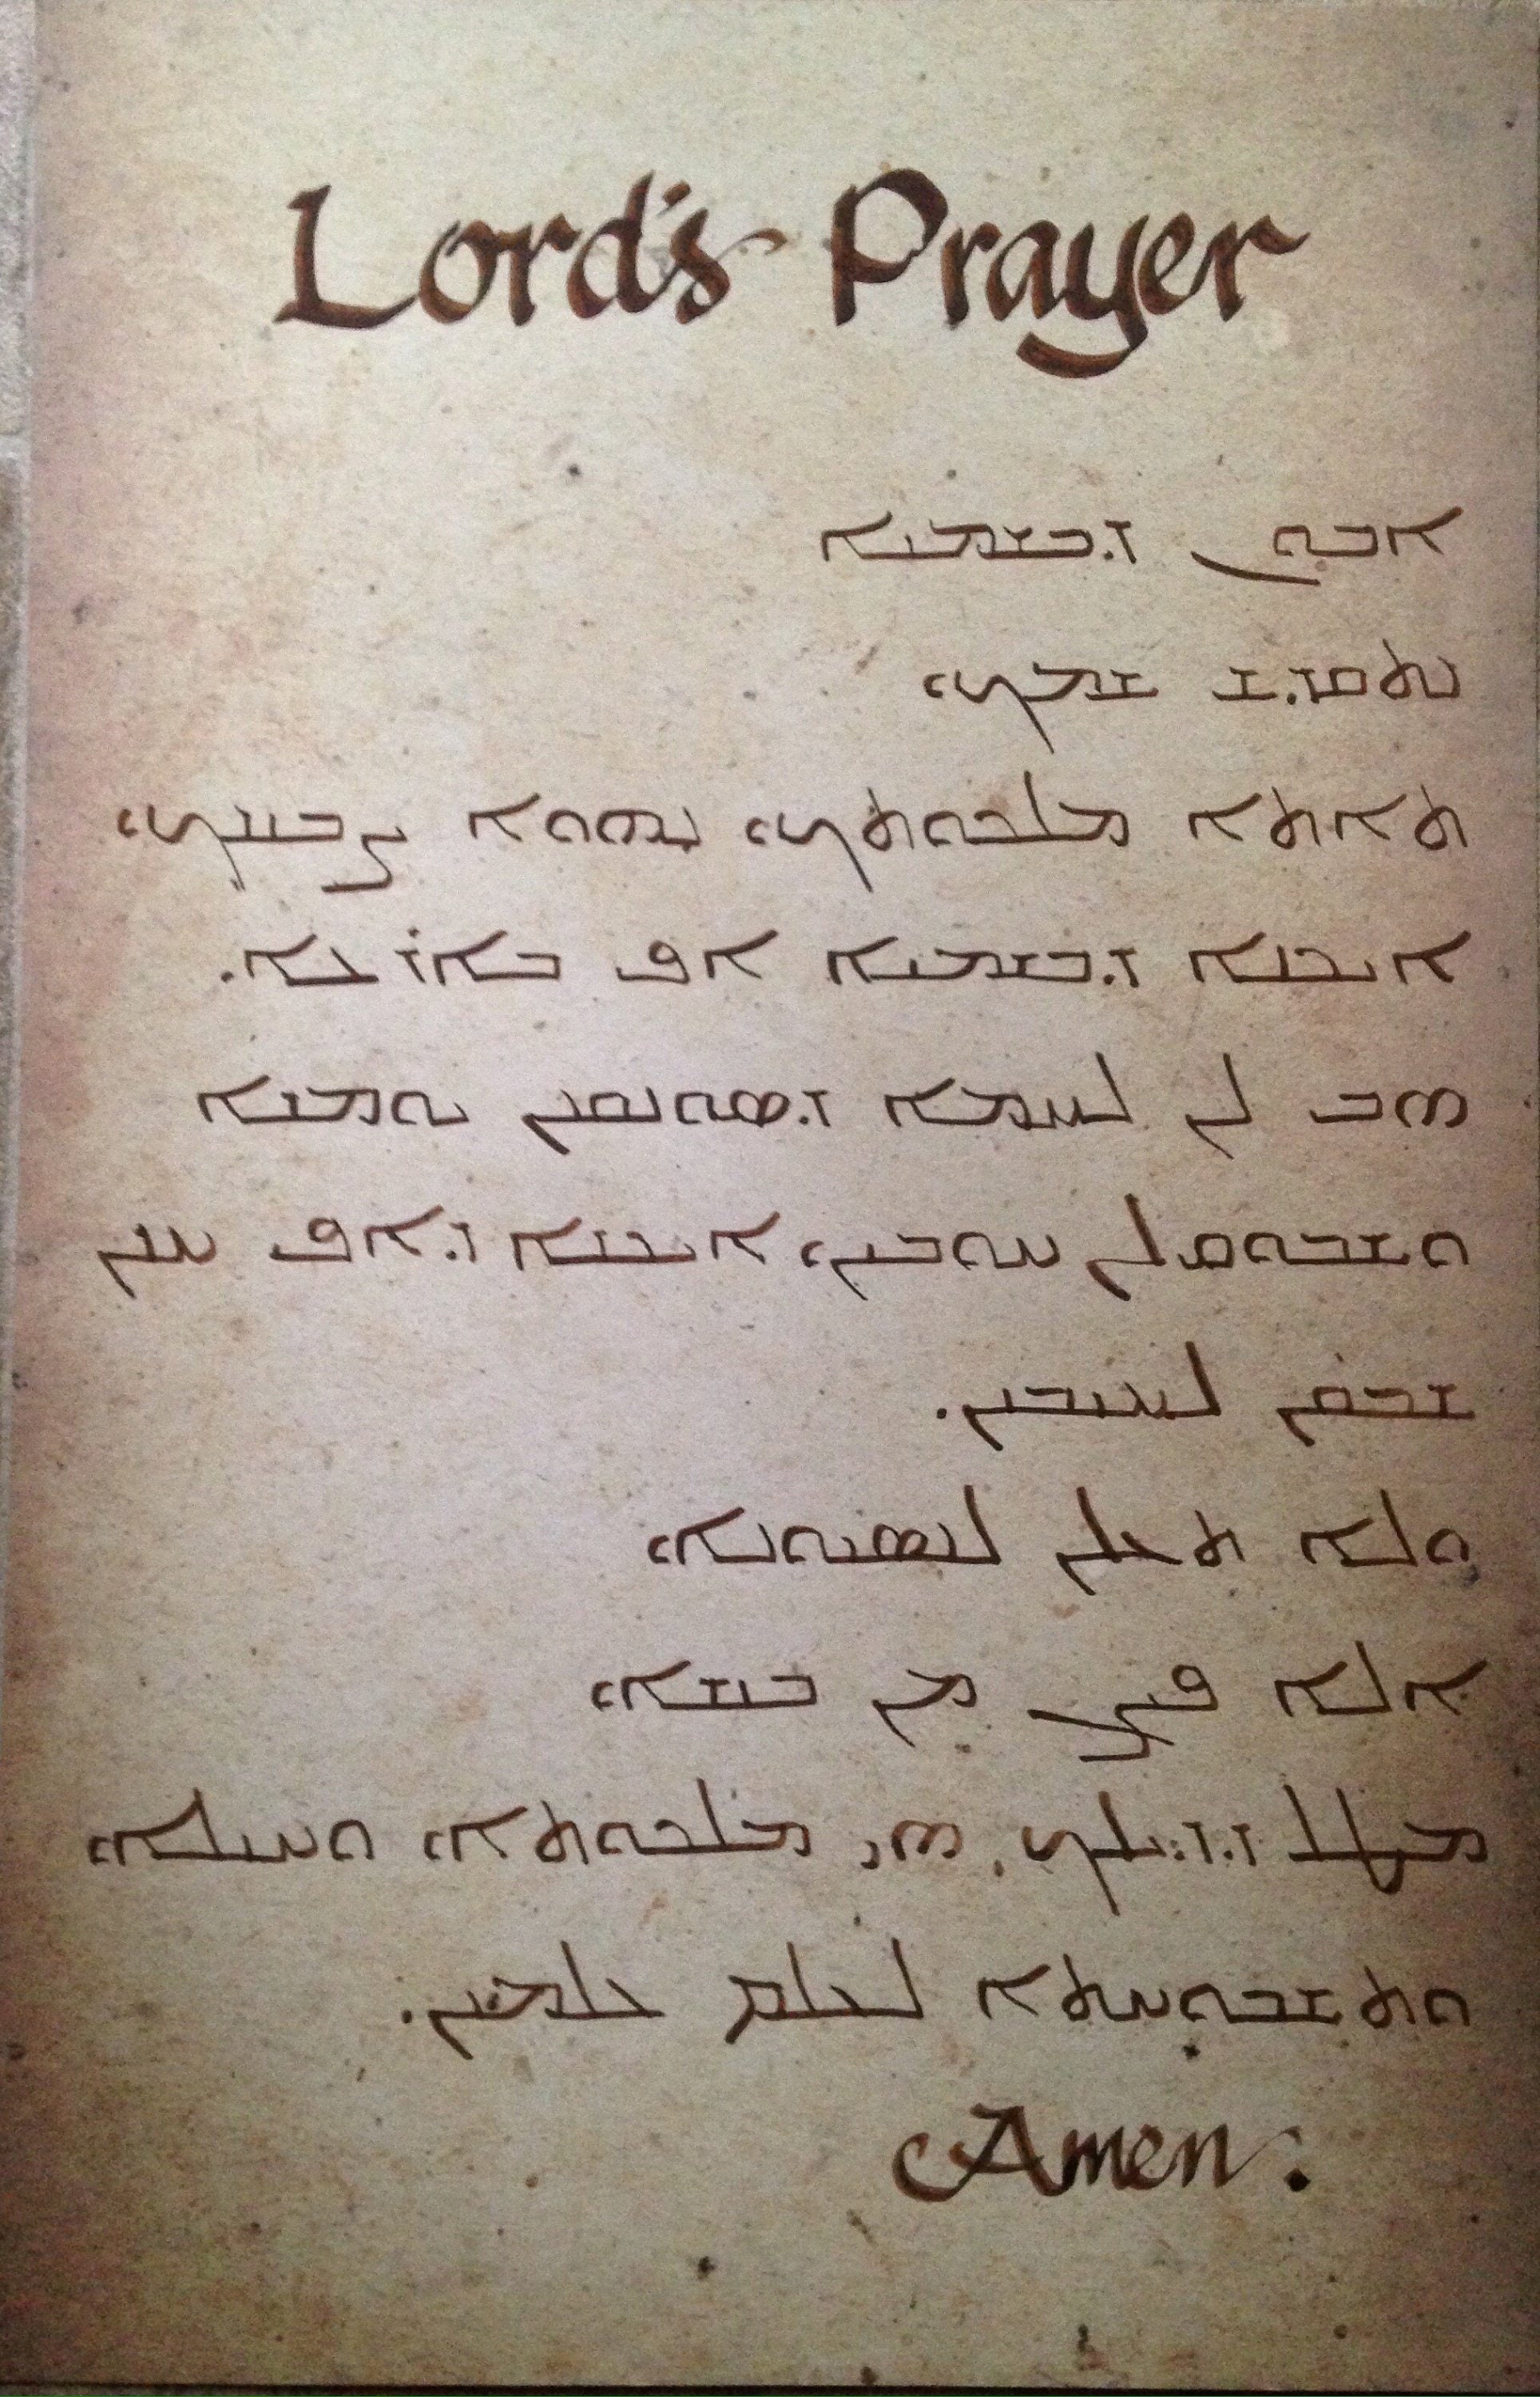 Lord's Prayer
ܐܒܘܢ ܕܒܫܡܝܐ
ܢܬܩܕܫ ܫܡܟ،
ܬܐܬܐ ܡܠܟܘܬܟ، ܢܗܘܐ ܨܒܝܢܟ،
ܐܝܟܢܐ ܕܒܫܡܝܐ ܐܦ ܒܐܪܥܐ.
ܗܒ ܠܢ ܠܚܡܐ ܕܣܘܢܩܢ ܝܘܡܢܐ
ܘܫܒܘܩ ܠܢ ܚܘܒܝܢ، ܐܝܟܢܐ ܕܐܦ ܚܢܢ
ܫܒܩܢ ܠܚܝܒܝܢ.
ܘܠܐ ܬܥܠܢ ܠܢܣܝܘܢܐ،
ܐܠܐ ܦܨܢ ܡܢ ܒܝܫܐ،
ܡܛܠ ܕܕܝܠܟ، ܗܝ ܡܠܟܘܬܐ، ܘܚܝܠܐ،
ܘܬܫܒܘܚܬܐ ܠܥܠܡ ܥܠܡܝܢ.
Amen.